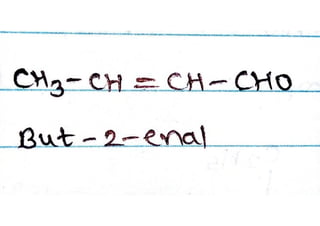 CH₃-CH=CH-CHO
But-2-enal